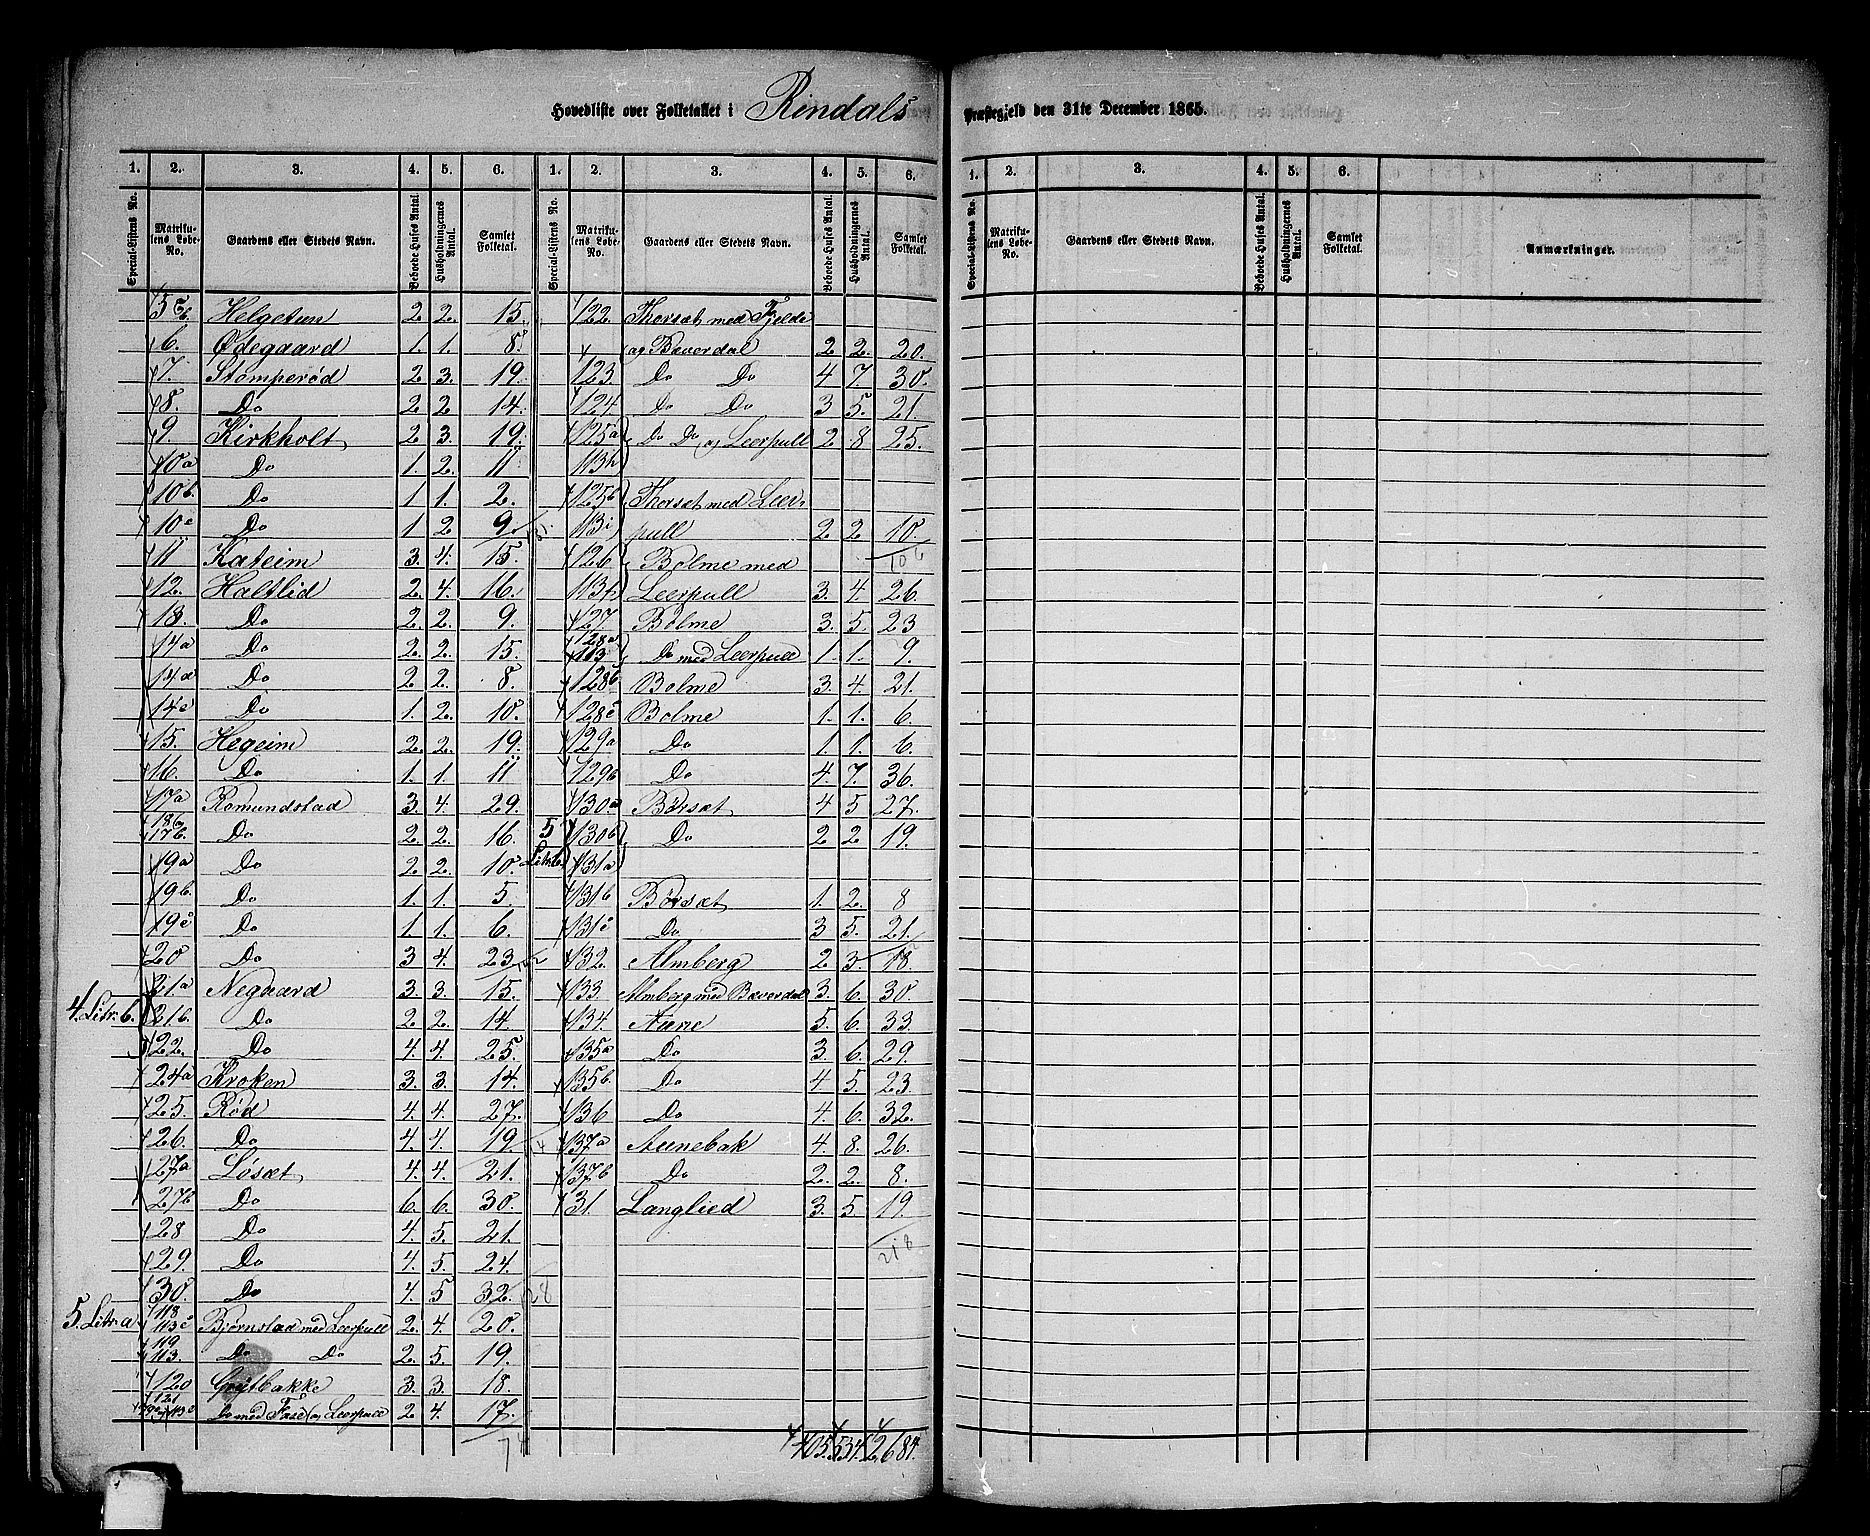 Hovedliste over Folketallet i Rindals Præstegjeld den 31te December 1865.
1. 2. 3. 4. 5. 6. 1. 2. 3. 4. 5. 6. 1. 2. 3. 4. 5. 6.
Special-Listens No. Matrikulens Løbe-No. Gaardens eller Stedets Navn. Beboede Huses Antal. Husholdningernes Antal. Samlet Folketal. Special-Listens No. Matrikulens Løbe-No. Gaardens eller Stedets Navn. Beboede Huses Antal. Husholdningernes Antal. Samlet Folketal. Special-Listens No. Matrikulens Løbe-No. Gaardens eller Stedets Navn. Beboede Huses Antal. Husholdningernes Antal. Samlet Folketal. Anmærkninger.
Helgetun 2. 2. 15.
6. Ødegaard 1. 1. 8.
7. Stomperød 2. 3. 19.
8. Do 2. 2. 14.
9. Kirkholt 2. 3. 19.
10a Do 1. 2. 11
10b. Do 1. 1. 2.
10c Do 1 2 9.
11 Kateim 3. 4. 15.
12. Haltlid 2. 4. 16.
13. Do 2. 2. 9.
14a Do 2. 2. 15.
14 Do 2 2. 8.
14c Do 1. 2. 10.
15. Hegeim 2. 2. 19.
16. Do 1. 1. 11
17a Romundstad 3. 4. 29.
18 og 17b. Do 2. 2. 16.
19a Do 2. 2. 10.
19b. Do 1. 1. 5.
19c Do 1. 1. 6.
20 Do 3 4. 23
21a Negaard 3. 3. 15.
4. Litr. b. 21b. Do 2. 2. 14
22. Do 4. 4. 25.
24a Kroken 3. 3. 14.
25. Rød 4. 4. 27.
26. Do 4. 4. 19.
27a Løsæt 4. 4. 21.
27b Do 6. 6. 30.
28 Do 4. 5. 21.
29. Do 4. 5. 24.
30. Do 4. 5 32.
5. Litr. a 118 113c Bjørnstad med Leerpull 2. 4. 20.
119 113. Do Do 2. 5. 19.
120 Grytbakke 3. 3. 18.
121 Do med Kase og Leerpull 2 4. 17.
122. Thorsæt med Fjelde
og Bæverdal 2 2. 20.
123. Do Do 4 7. 30.
124 Do Do 3 5. 21.
125a Do Do og Leerpull 2 8 25.
113h
125b Thorsæt med Leer-
113i pull 2 2 10.
106
126 Bolme med
113f Leerpull 3. 4. 26.
127. Bolme 3. 5. 23
128a 113 Do med Leerpull 1. 1. 9.
128b Bolme 3. 4. 21.
128c Bolme 1. 1. 6.
129a Do 1. 1. 6.
129b Do 4. 7. 36.
130a Børsæt 4 5 27.
5 130b Do 2 2 19.
Litr. b. 131a
131b Børsæt 1. 2. 8
131c Do 3 5. 21.
132. Almberg 2 3. 18.
133 Almberg med Bæverdal 3. 6. 30.
134. Aune 5. 6. 33.
135a Do 3. 6. 29.
135b. Do 4 5. 23.
136 Do 4. 6. 32.
137a Aunebak 4. 8. 26.
137b Do 2. 2. 8.
31. Langlied 3. 5. 19.
218
405. 534. 2684.